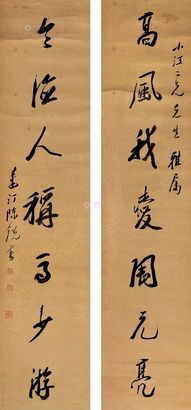 高風我愛周元亮
小江二兄先生雅屬
令德人稱馬少游
蓮汀陳銑書